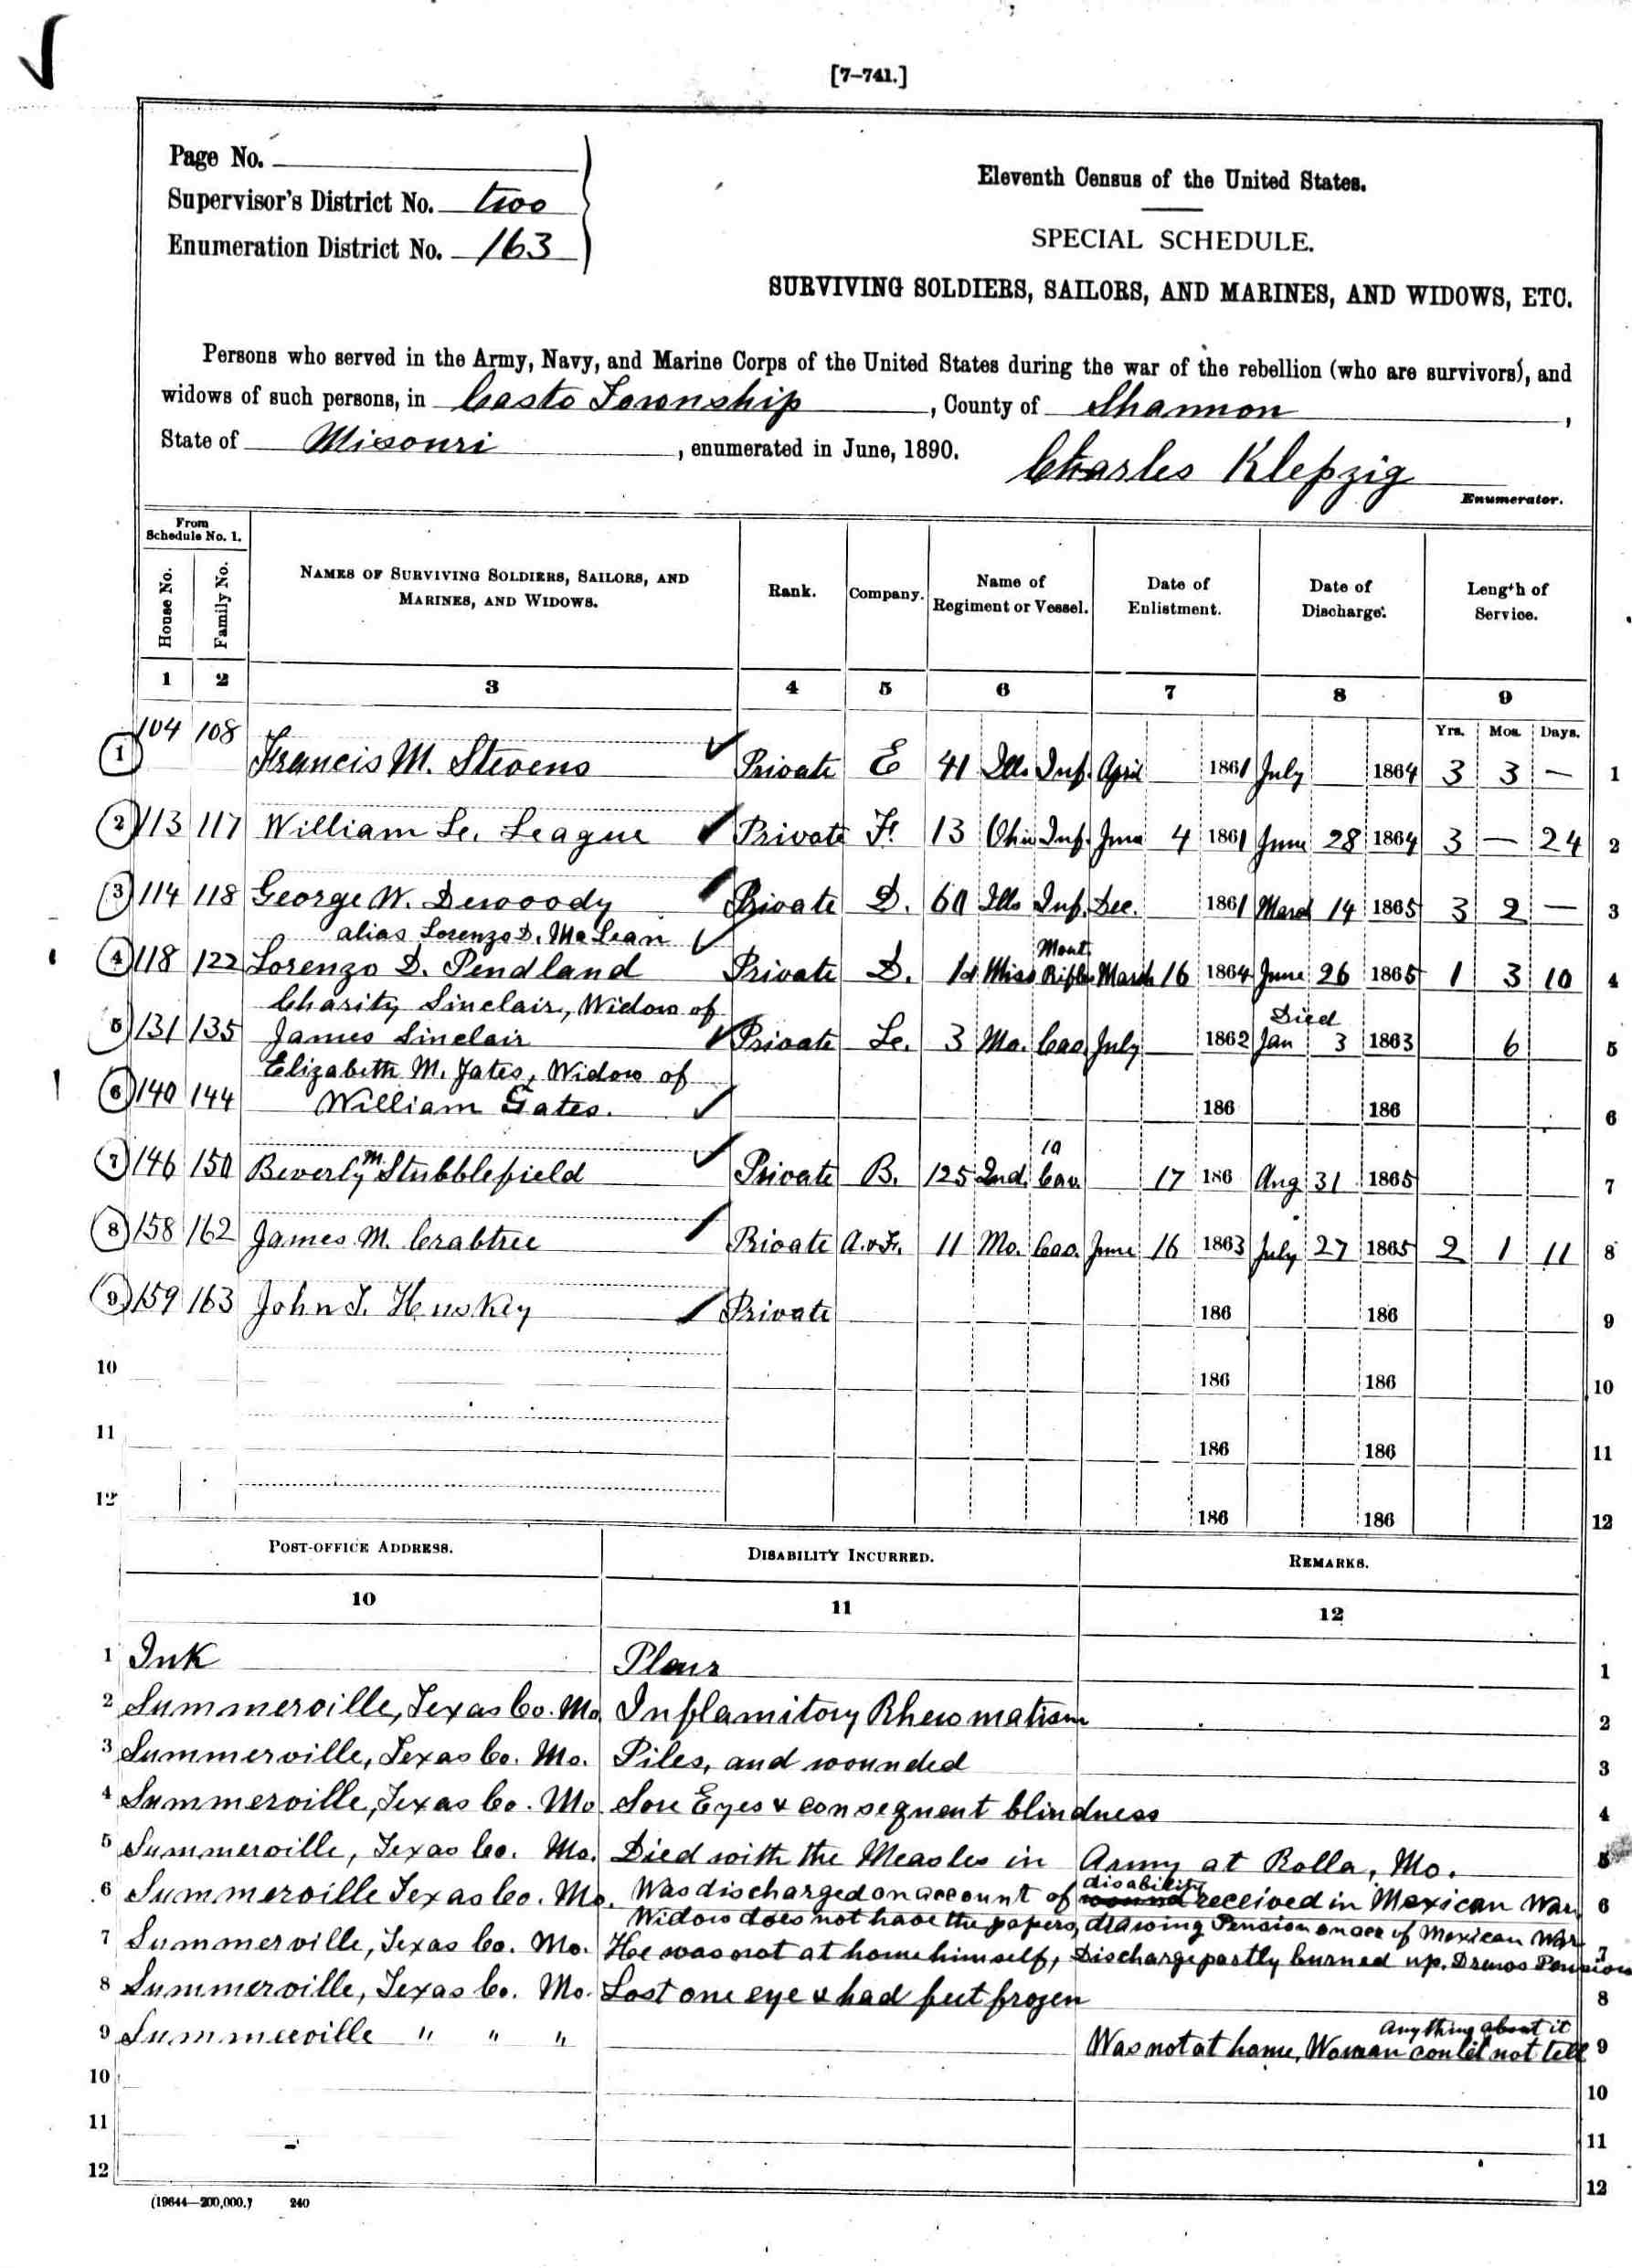 [7-741.]
Page No.
Supervisor's District No. two
Enumeration District No. 163
Eleventh Census of the United States.
SPECIAL SCHEDULE.
SURVIVING SOLDIERS, SAILORS, AND MARINES, AND WIDOWS, ETC.
Persons who served in the Army, Navy, and Marine Corps of the United States during the war of the rebellion (who are survivors), and
widows of such persons, in Casto Township, County of Shannon,
State of Missouri, enumerated in June, 1890.
Charles Klepzig
Enumerator.
From Schedule No. 1.
House No.
Family No.
NAMES OF SURVIVING SOLDIERS, SAILORS, AND MARINES, AND WIDOWS.
Rank.
Company.
Name of Regiment or Vessel.
Date of Enlistment.
Date of Discharge.
Length of Service.
1 2 3 4 5 6 7 8 9
Yrs. Mos. Days.
1 104 108 Francis M. Stevens Private E 41 Ills Inf. April 1861 July 1864 3 3 — 1
2 113 117 William Le. League Private F. 13 Ohio Inf. June 4 1861 June 28 1864 3 — 24 2
3 114 118 George W. Dewoody Private D. 60 Ills Inf. Dec. 1861 March 14 1865 3 2 — 3
alias Lorenzo D. McLean
4 118 122 Lorenzo D. Pendland Private D. 1st Miss Mount Rifles March 16 1864 June 26 1865 1 3 10 4
Charity Sinclair, Widow of
5 131 135 James Sinclair Private Le. 3 Mo. Cav. July 1862 Died Jan 3 1863 6 5
Elizabeth M. Yates, Widow of
6 140 144 William Gates. 186 186 6
7 146 150 Beverly M. Stubblefield Private B. 125 Ind. Cav. 10 17 186 Aug 31 1865 7
8 158 162 James M. Crabtree Private A. & F. 11 Mo. Cav. June 16 1863 July 27 1865 2 1 11 8
9 159 163 John T. Huskey Private 186 186 9
10 186 186 10
11 186 186 11
12 186 186 12
POST-OFFICE ADDRESS. DISABILITY INCURRED. REMARKS.
10 11 12
1 Ink 1
2 Summerville, Texas Co. Mo. Inflamitory Rhewmatism 2
3 Summerville, Texas Co. Mo. Piles, and wounded 3
4 Summerville, Texas Co. Mo. Sore Eyes & consequent blindness 4
5 Summerville, Texas Co. Mo. Died with the Measles in Army at Rolla, Mo. 5
6 Summerville Texas Co. Mo. Was discharged on account of disability received in Mexican War. 6
Widow does not have the papers, drawing Pension on acc of Mexican War
7 Summerville, Texas Co. Mo. He was not at home himself, Discharge partly burned up. Draws Pension 7
8 Summerville, Texas Co. Mo. Lost one eye & had feet frozen 8
9 Summerville " " " Was not at home, Woman could not tell anything about it 9
10 10
11 11
12 12
(19644—200,000.) 240